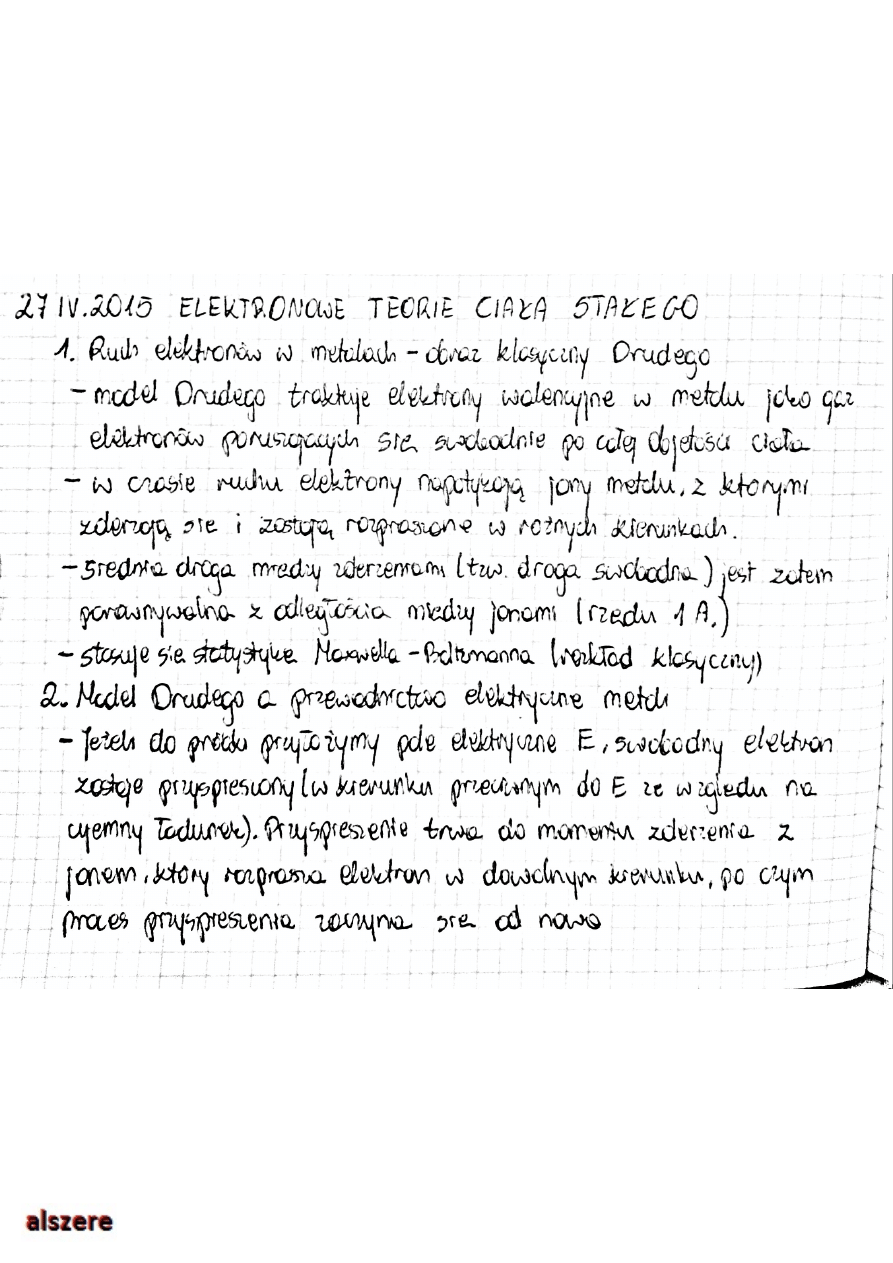 27 IV.2015 ELEKTRONOWE TEORIE CIAŁA STAŁEGO
1. Ruch elektronów w metalach - obraz klasyczny Drudego
- model Drudego traktuje elektrony walencyjne w metalu jako gaz
elektronów poruszających się swobodnie po całej objętości ciała
- w czasie ruchu elektrony napotykają jony metalu, z którymi
zderzają się i zostają rozpraszane w różnych kierunkach.
- średnia droga między zderzeniami (tzw. droga swobodna) jest zatem
porównywalna z odległością między jonami (rzędu 1 A.)
- stosuje się statystykę Maxwella - Boltzmanna (rozkład klasyczny)
2. Model Drudego a przewodnictwo elektryczne metali
- Jeżeli do próbki przyłożymy pole elektryczne E, swobodny elektron
zostaje przyspieszony (w kierunku przeciwnym do E ze względu na
ujemny ładunek). Przyspieszenie trwa do momentu zderzenia z
jonem, który rozprasza elektron w dowolnym kierunku, po czym
proces przyspieszenia zaczyna się od nowa
alszere